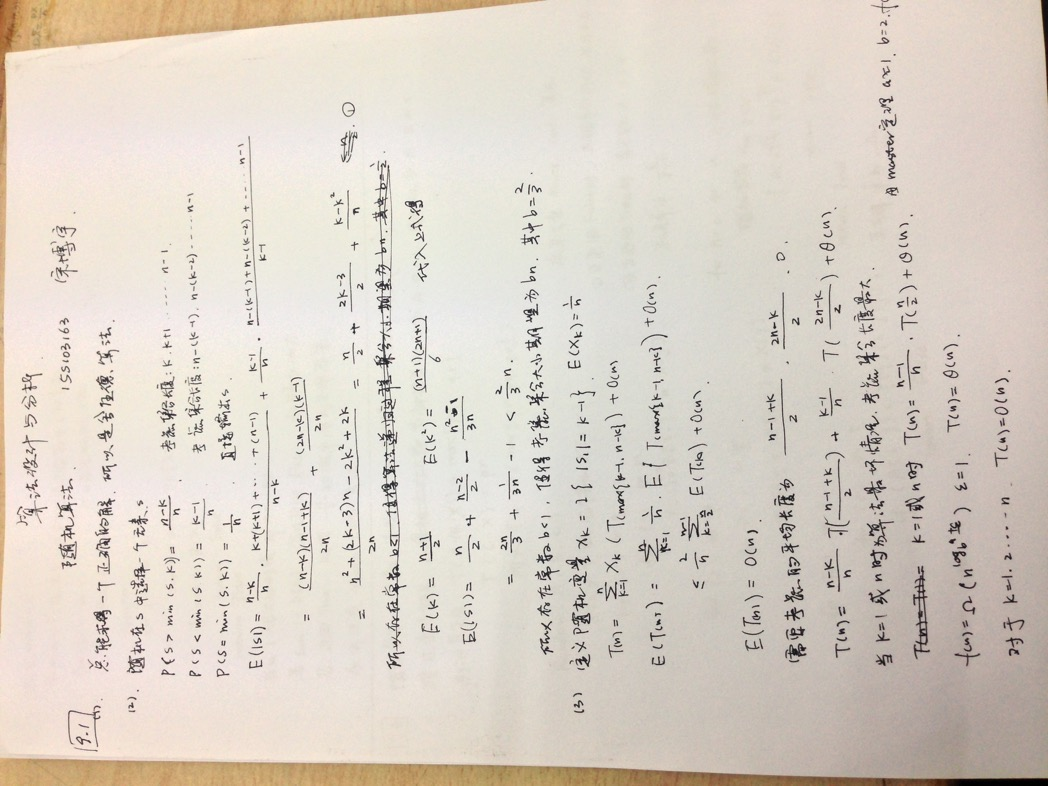 算法设计与分析
随机算法. 155103163 宋博宇
9.1
(1). 总能求得一个正确的解. 所以是舍伍德算法.
(2). 随机在S中选择一个元素s
P(s > min(S,K)) = \frac{n-k}{n} 考虑集合长度: k, k+1 ..... n-1.
P(s < min(S,K)) = \frac{k-1}{n} 考虑集合长度: n-(k-1), n-(k-2) ..... n-1
P(s = min(S,K)) = \frac{1}{n}. 直接输出s.
E(|S|) = \frac{n-k}{n} · \frac{k+(k+1)+...+(n-1)}{n-k} + \frac{k-1}{n} · \frac{n-(k-1)+n-(k-2)+.....n-1}{k-1}
= \frac{(n-k)(n-1+k)}{2n} + \frac{(2n-k)(k-1)}{2n}
= \frac{n^2+(2k-3)n-2k^2+2k}{2n} = \frac{n}{2} + \frac{2k-3}{2} + \frac{k-k^2}{n} ①
所以存在常数b<1, 使得算法递归过程集合大小期望为bn. 其中b=\frac{1}{2}.
E(k) = \frac{n+1}{2} E(k^2) = \frac{(n+1)(2n+1)}{6} 代入上式得
E(|S|) = \frac{n}{2} + \frac{n-2}{2} - \frac{n^2-1}{3n}
= \frac{2n}{3} + \frac{1}{3n} - 1 < \frac{2}{3}n.
所以存在常数b<1, 使得考虑集合大小期望为bn. 其中b=\frac{2}{3}.
(3) 定义随机变量 X_k = I{|S_1|=k-1}. E(X_k) = \frac{1}{n}
T(n) = \sum_{k=1}^{n} X_k (T(max{k-1, n-k}) + O(n)
E(T(n)) = \sum_{k=1}^{n} \frac{1}{n} · E{T(max{k-1, n-k})} + O(n).
≤ \frac{2}{n} \sum_{k=\frac{n}{2}}^{n-1} E(T(k)) + O(n).
E(T(n)) = O(n).
需要考虑的平均长度为 \frac{n-1+k}{2}, \frac{2n-k}{2}, 0.
T(n) = \frac{n-k}{n} · T(\frac{n-1+k}{2}) + \frac{k-1}{n} · T(\frac{2n-k}{2}) + θ(n).
当k=1或n时为算法最坏情况. 考虑集合长度最大.
k=1或n时 T(n) = \frac{n-1}{n} · T(\frac{n}{2}) + θ(n). 由master定理 a≈1, b=2,
f(n) = Ω(n^{log_b a+ε}) ε=1. T(n) = θ(n).
对于 k=1.2.....n. T(n) = O(n).